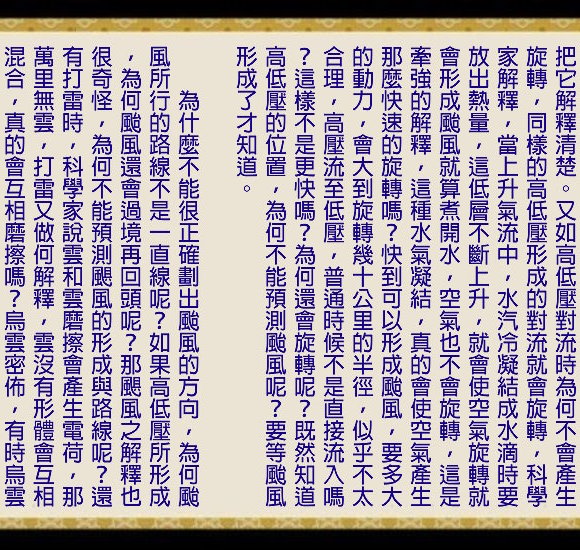 把它解釋清楚。又如高低壓對流時為何不會產生
旋轉，同樣的高低壓形成的對流就會旋轉，科學
家解釋，當上升氣流中，水汽冷凝結成水滴時要
放出熱量，這低層不斷上升，就會使空氣旋轉就
會形成颱風就算煮開水，空氣也不會旋轉，這是
牽強的解釋，這種水氣凝結，真的會使空氣產生
那麼快速的旋轉嗎？快到可以形成颱風，要多大
的動力，會大到旋轉幾十公里的半徑，似乎不太
合理，高壓流至低壓，普通時候不是直接流入嗎
？這樣不是更快嗎？為何還會旋轉呢？既然知道
高低壓的位置，為何不能預測颱風呢？要等颱風
形成了才知道。
為什麼不能很正確劃出颱風的方向，為何颱
風所行的路線不是一直線呢？如果高低壓所形成
，為何颱風還會過境再回頭呢？那颶風之解釋也
很奇怪，為何不能預測颶風的形成與路線呢？還
有打雷時，科學家說雲和雲磨擦會產生電荷，那
萬里無雲，打雷又做何解釋，雲沒有形體會互相
混合，真的會互相磨擦嗎？烏雲密佈，有時烏雲